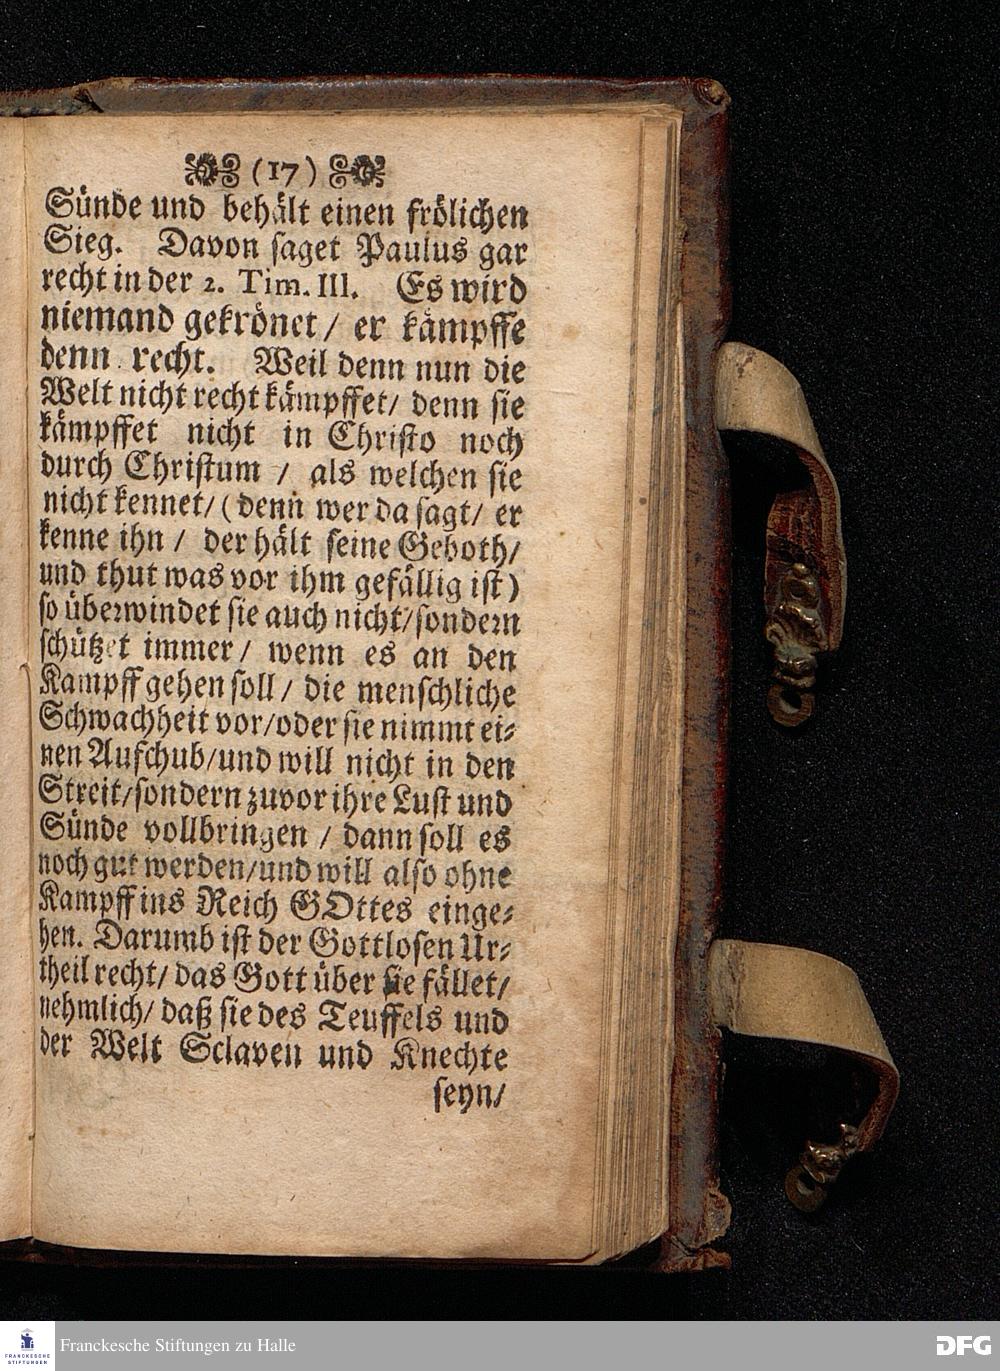 (17)
Sünde und behält einen frölichen
Sieg. Davon saget Paulus gar
recht in der 2. Tim. III. Es wird
niemand gekrönet / er kämpffe
denn recht. Weil denn nun die
Welt nicht recht kämpffet / denn sie
kämpffet nicht in Christo noch
durch Christum / als welchen sie
nicht kennet / (denn wer da sagt / er
kenne ihn / der hält seine Geboth /
und thut was vor ihm gefällig ist)
so überwindet sie auch nicht / sondern
schützet immer / wenn es an den
Kampff gehen soll / die menschliche
Schwachheit vor / oder sie nimmt ei-
nen Aufchub / und will nicht in den
Streit / sondern zuvor ihre Lust und
Sünde vollbringen / dann soll es
noch gut werden / und will also ohne
Kampff ins Reich GOttes einge-
hen. Darumb ist der Gottlosen Ur-
theil recht / das Gott über sie fället /
nehmlich / daß sie des Teuffels und
der Welt Sclaven und Knechte
seyn /
FRANCKESCHE
STIFTUNGEN
Franckesche Stiftungen zu Halle
DFG